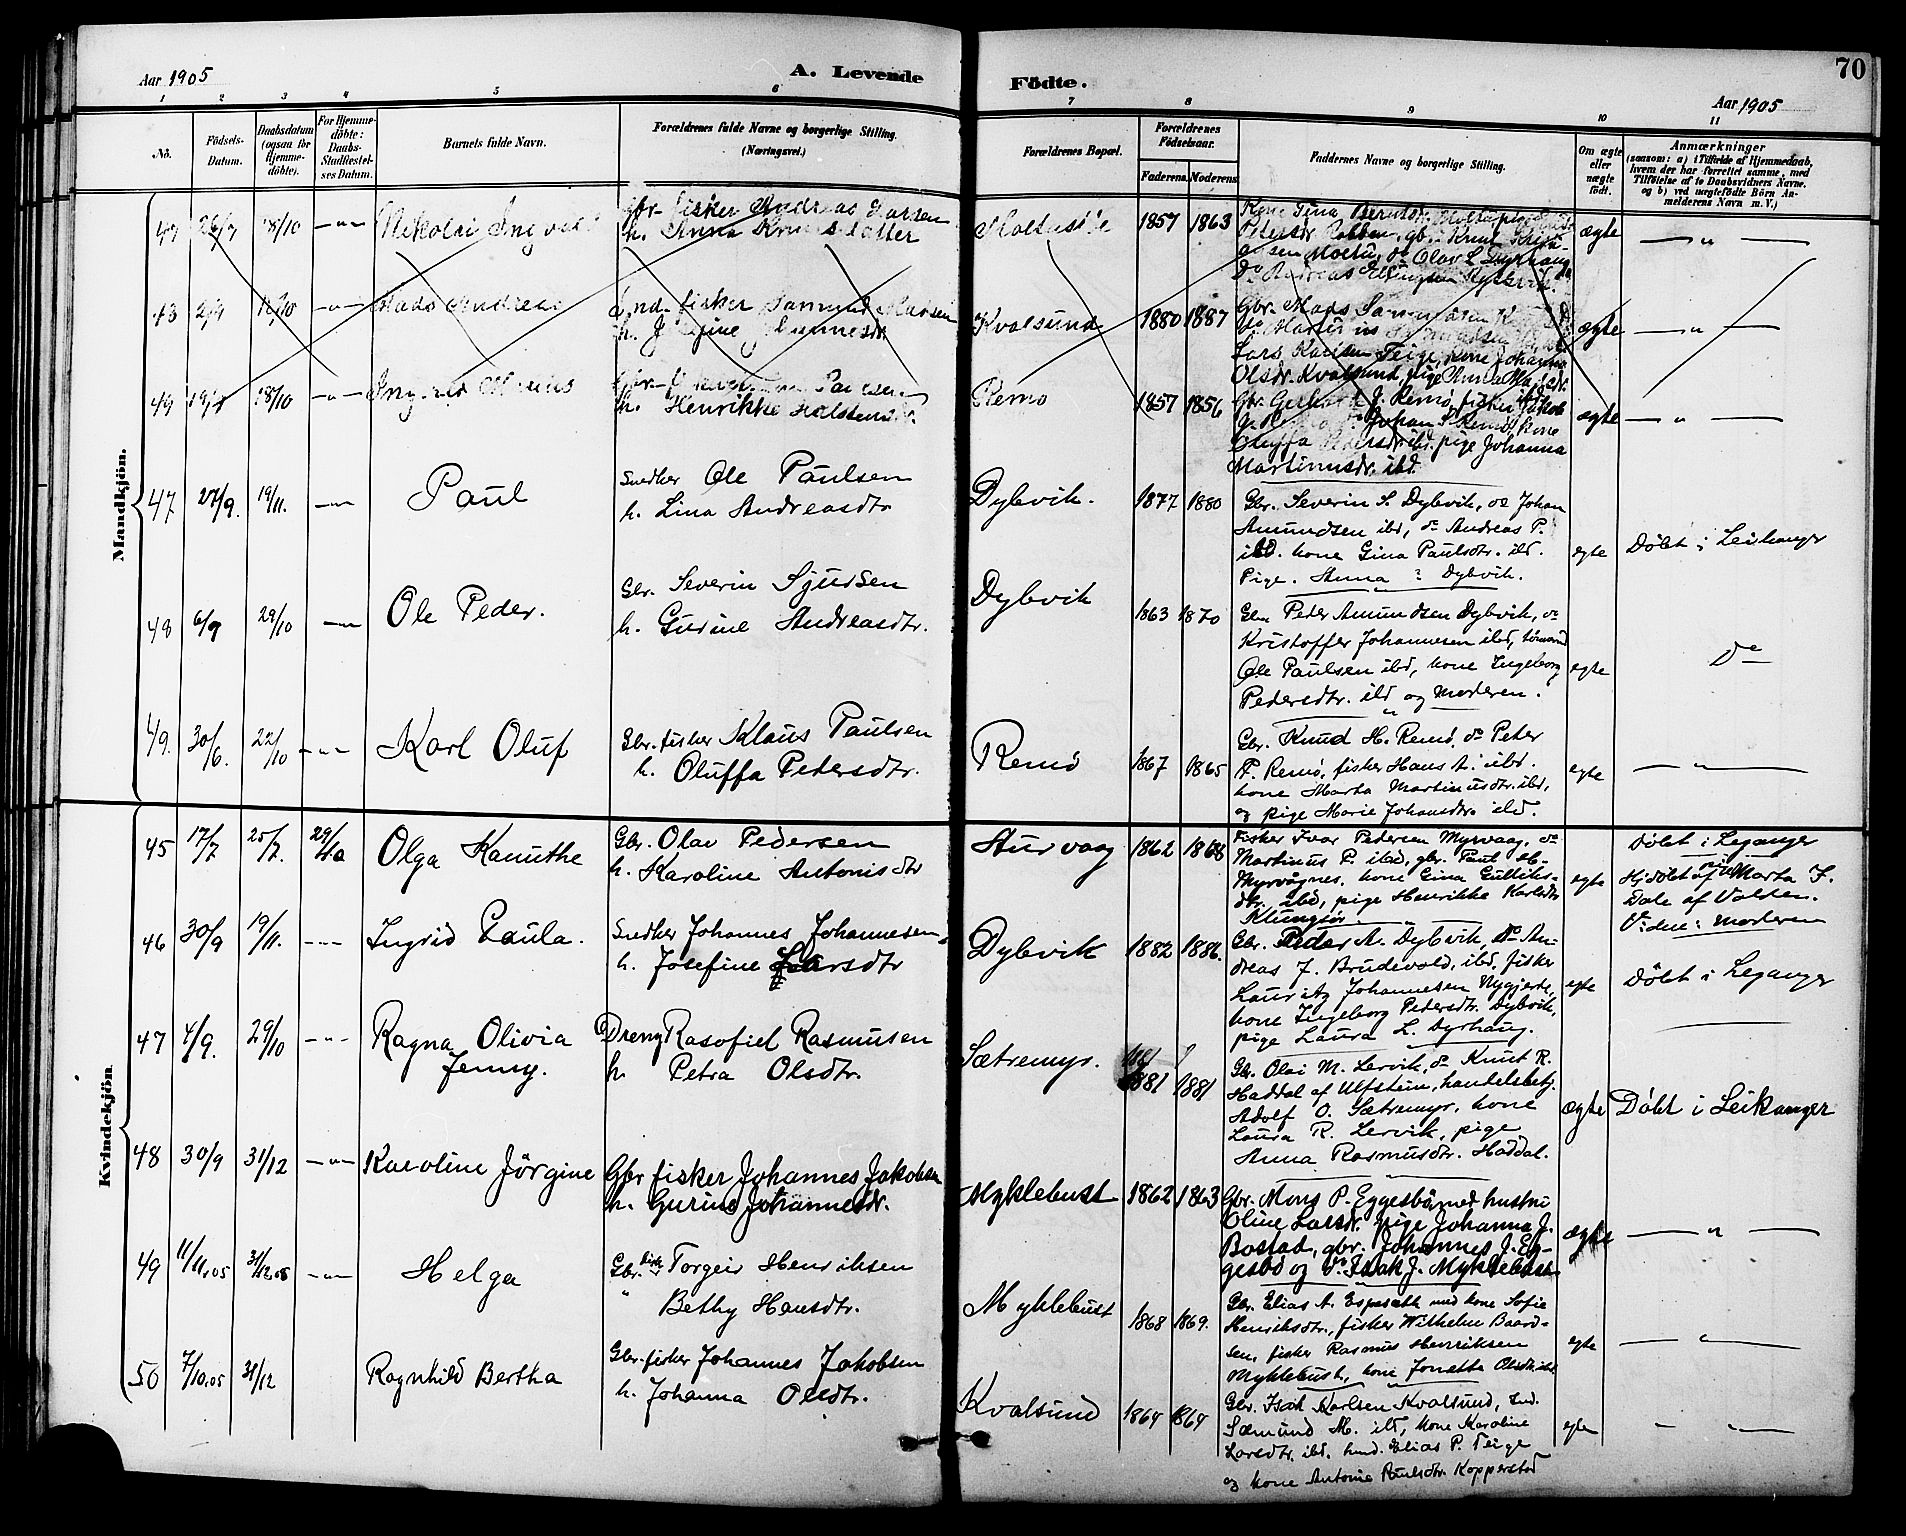 Aar 1905
A. Levende
Födte.
70
Aar 1905
1 2 3 4 5 6 7 8 9 10 11
No.
Födsels-
Datum.
Daabsdatum
(ogsaa for
Hjemme-
döbte).
For Hjemme-
döbte:
Daabs-
Stadfæstel-
ses Datum.
Barnets fulde Navn.
Forældrenes fulde Navne og borgerlige Stilling.
(Næringsvei.)
Forældrenes Bopæl.
Forældrenes
Födselsaar.
Faderens. Moderens.
Faddernes Navne og borgerlige Stilling.
Om ægte
eller
uægte
födt.
Anmærkninger
(saasom: a) i Tilfælde af Hjemmedaab,
hvem der har forrettet samme, med
Tilföielse af to Daabsvidners Navne.
og b) ved uægtefödte Börn An-
melderens Navn m.V.)
Mandkjön.
18/10 Nikolai
Gbr. fisker Andreas Larsen
h. Anna
1857 1863
ægte
Mads Andreas
fisker
Kvalsund 1880 1887
Gbr. Mads
Lars Karlsen Teige, kone Johanna
Olsdr. Kvalsund, pige Anna
ægte
49 18/10
h. Henrikke
Remö 1857 1856
Gbr. Gerhard J. Remö, fisker Jakob
Johan Remö, kone
Oluffa Pedersdr. ibd. pige Johanna
Martinusdr. ibd.
ægte
47 27/9. 19/11. Paul
Snedker Ole Paulsen
h. Lina Andreasdtr
Dybvik. 1877 1880
Gbr. Severin S. Dybvik, do Johan
Amundsen ibd, do Andreas P.
ibd. kone Gina Paulsdtr. ibd.
Pige. Anna ? Dybvik.
egte
Döbt i Leikanger
48 6/9 29/10 Ole Peder.
Gbr. Severin Sjursen
h. Gurine Andreasdtr.
Dybvik 1863 1870
Gbr. Peder Amundsen Dybvik, do
Kristoffer Johannesen ibd,
Ole Paulsen ibd, kone Ingeborg
Pedersdtr. ibd og Moderen.
egte
Do
49. 30/6. 22/10 Karl Oluf
Gbr. fisker Klaus Paulsen
h. Oluffa Pedersdtr.
Remö 1867 1865
Gbr. Knud H. Remö, do Peter
P. Remö, fisker Hans A. ibd.
kone Marta Martinusdtr. ibd,
og pige Marie Johansdtr. ibd.
egte
Kvindekjön.
45 17/7 25/7. 29/10 Olga Kanuthe
Gbr. Olav Pedersen
h. Karoline Antonisdtr
Aurvaag 1862 1868
Fisker Ivar Pedersen Myrvaag, do
Martinus P. ibd, gbr. Paul H.
Myrvågnes. kone Gina Gulliks-
dtr. ibd, pige Henrikke Karlsdtr
Klungsör
egte
Döbt i Leganger
Hj.döbt af pige Marta F.
Dale af Valden.
Vidne: Moderen
46 30/9 19/11. Ingrid Paula.
Snedker Johannes Johannesen
h. Josefine Larsdtr
Dybvik 1882 1886.
Gbr. Peder A. Dybvik, Do An-
dreas J. Brudevold, ibd, fisker
Lauritz Johannesen Nygjerde,
kone Ingeborg Pedersdtr. Dybvik,
pige Laura L. Dyrhaug.
egte
Döbt i Leganger
47 4/9. 29/10 Ragna Olivia
Jenny.
Dreng Rasofiel Rasmusen
h. Petra Olsdtr.
Sætremyr. 1881 1881
Gbr. Olai M. Lervik, do Knut R.
Haddal af Ulfstein, handelsbetj.
Adolf O. Sætremyr, kone
Laura R. Lervik, pige
Anna Rasmusdtr. Haddal.
ægte
Döbt i Leikanger
48 30/9 31/12 Karoline Jörgine
Gbr fisker Johannes Jakobsen
h. Gurine Johannesdr.
Myklebust 1862 1863
Gbr. Mons P. Eggesbö med hustru
Oline Larsdr. pige Johanna J.
Bostad, gbr. Johannes J. Eg-
gesbö og Do Isak J. Myklebust
ægte
49 11/11.05 31/12.05 Helga
Gbr. fisk. Torgeir Henriksen
" Bethy Hansdtr.
Myklebust 1868 1869.
Gbr. Elias A. Espesæth med kone Sofie
Henriksdtr., fisker Wilhelm Baard-
sen, fisker Rasmus Henriksen
Myklebust, kone Jonetta
egte
50 7/10.05 31/12 Ragnhild Bertha
Gbr. fisker Johannes Jakobsen
h. Johanna Olsdtr.
Kvalsund 1864 1864
Gbr. Isak Karlsen Kvalsund, Ind.
Sæmund M. ibd, kone Karoline
Larsdtr. ibd. Elias P. Teige
og kone Antonie Paulsdtr. Kopperstad
egte